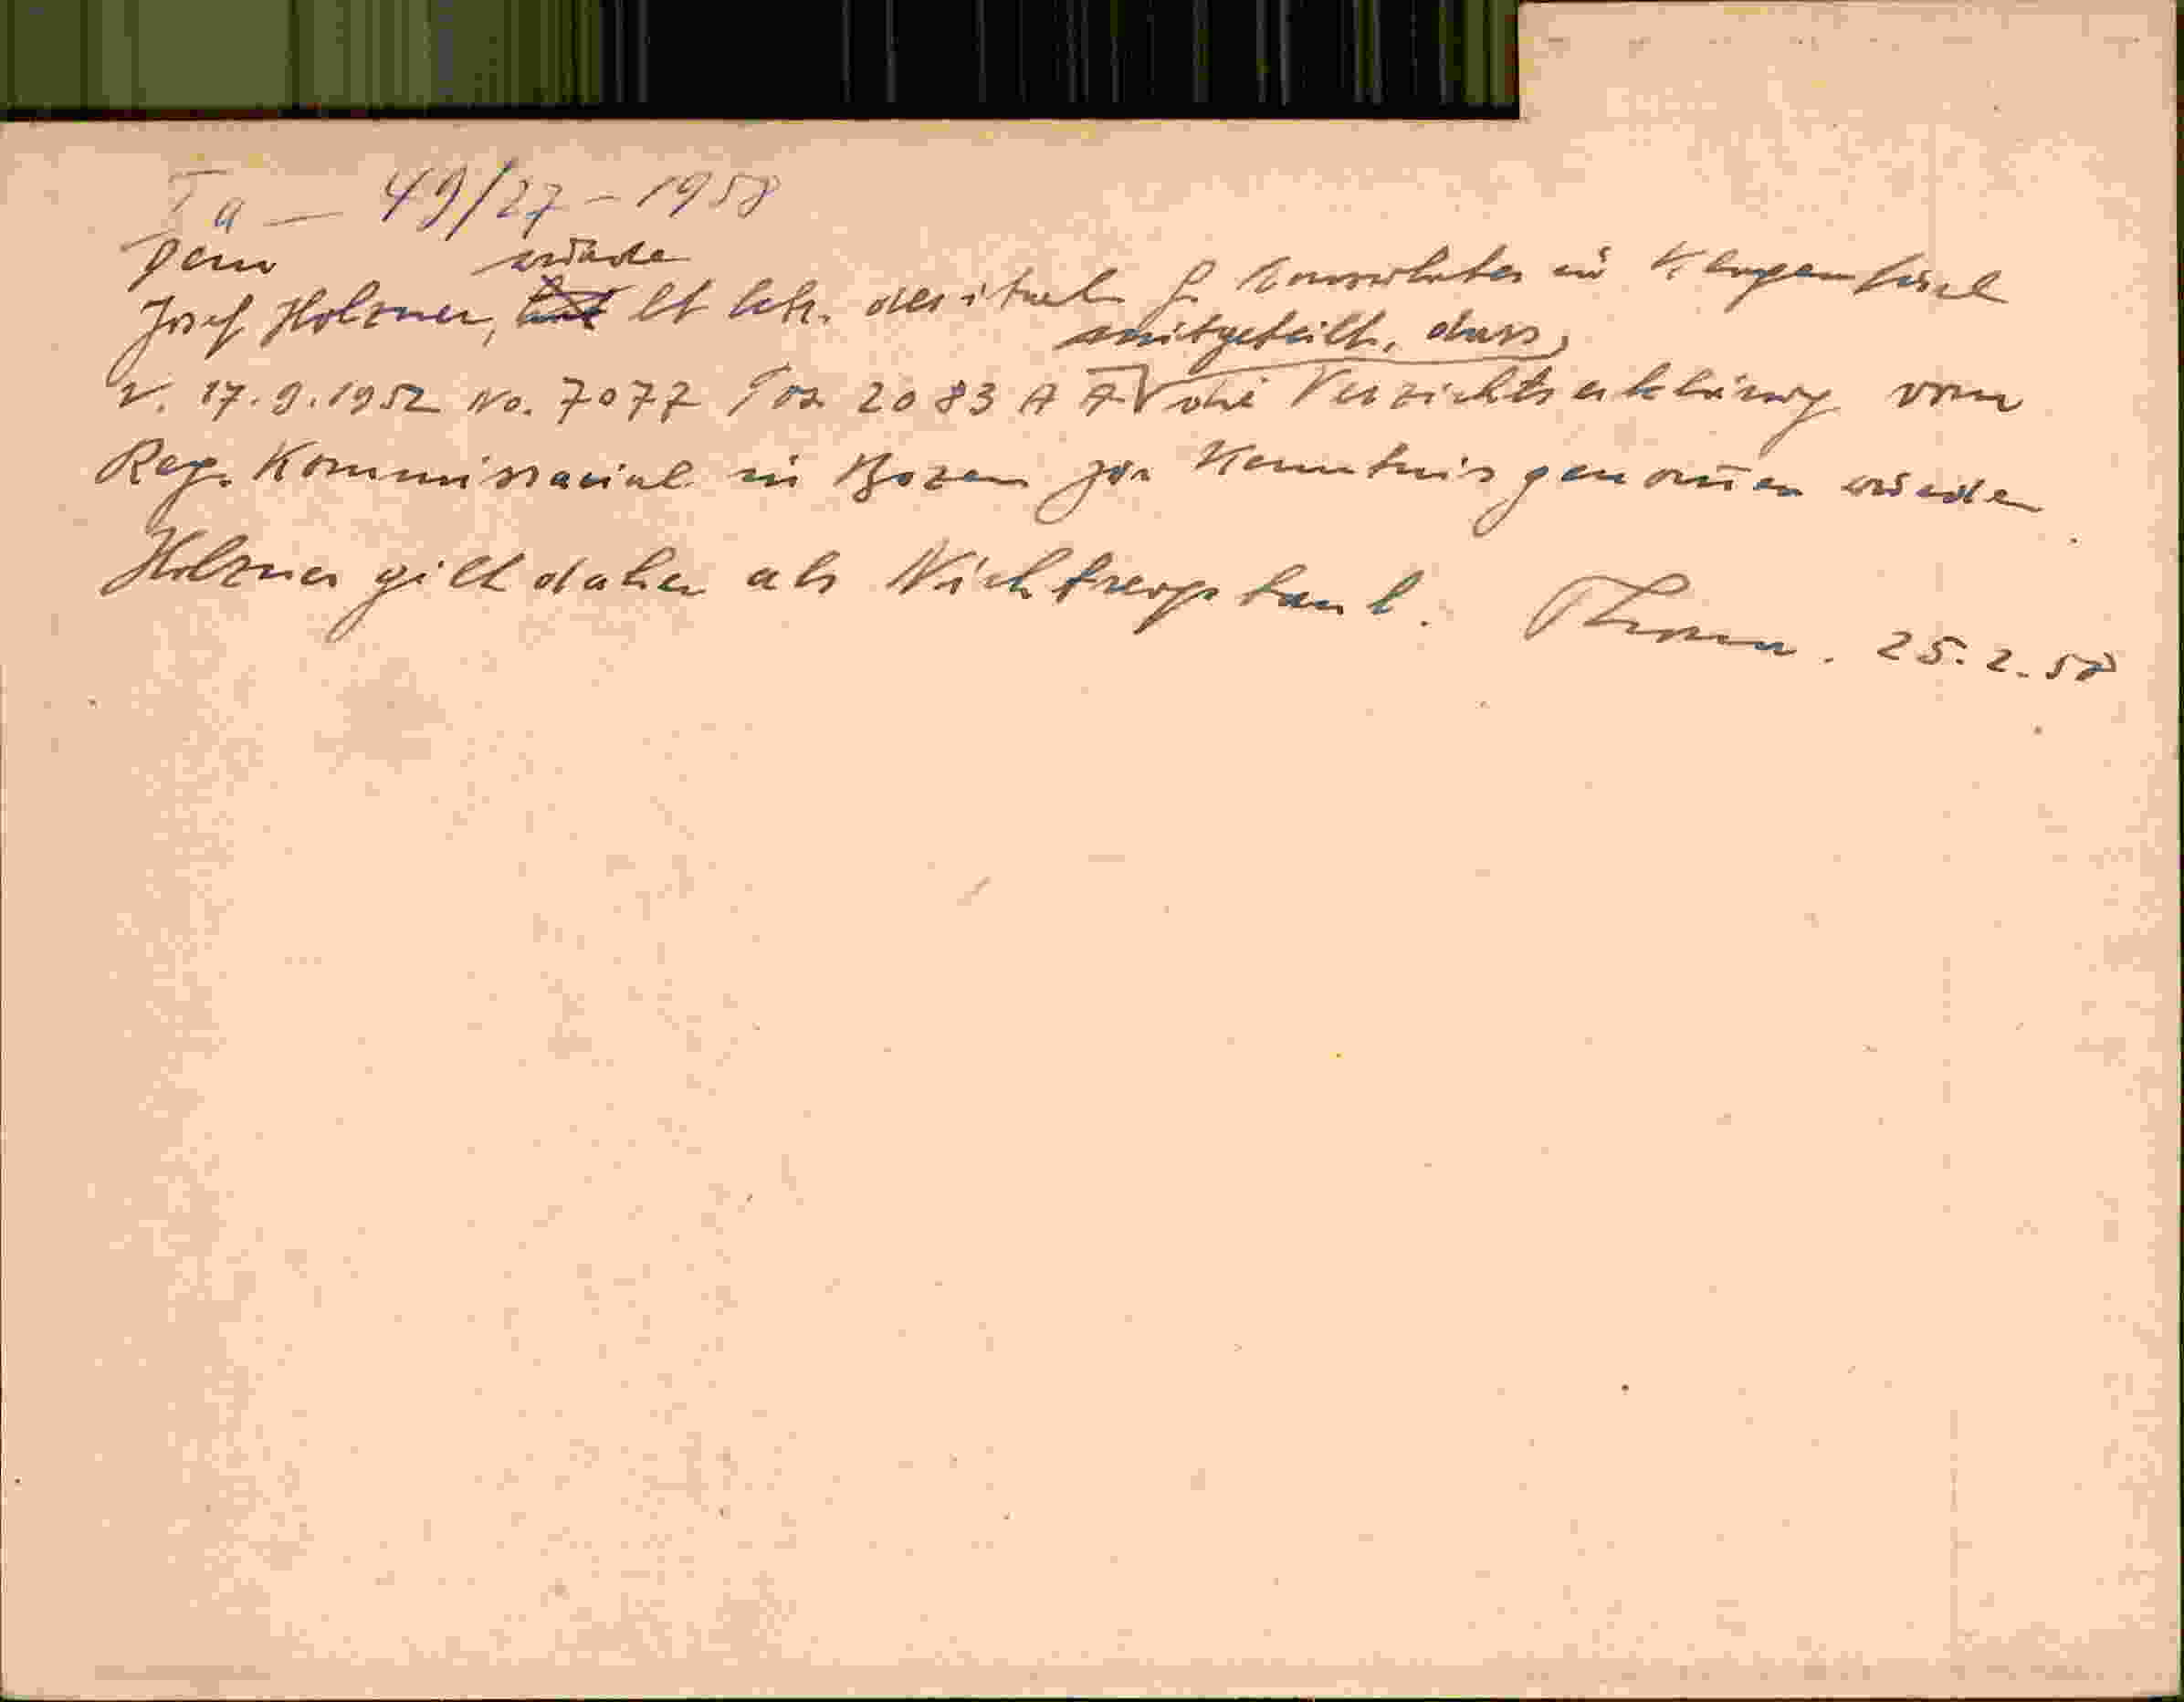 Ia — 49/27 - 1958
Dem wurde
Josef Holzner, hat lt Sch. des ital. G. Konsulates in Klagenfurt
mitgeteilt, dass
v. 17.9.1952 No. 7077 Pos 2083 A A die Verzichtserklärung vom
Reg. Kommissariat in Bozen zur Kenntnis genomen wurde.
Holzner gilt daher als Nichtreoptant. 25.2.58